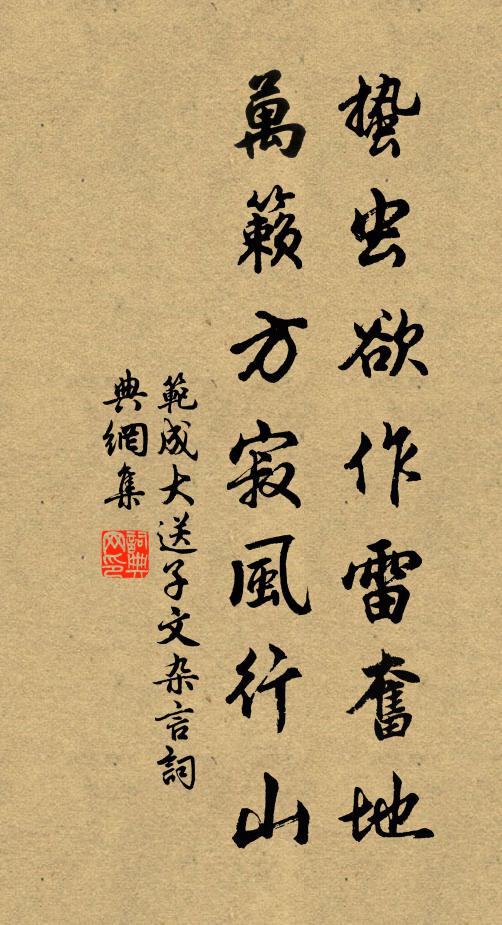 蟄虫欲作雷奮地
萬籟方寂風行山
範成大送子文杂言詞
典網集
詞典
网印